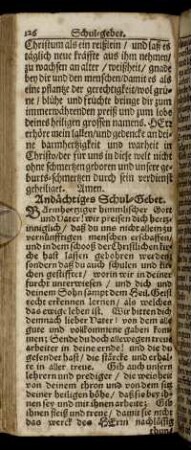 126 Schul-gebet.
Christum als ein reißlein / und laß es
täglich neue kräffte aus ihm nehmen /
zu wachsen an alter / weißheit / gnade
bey dir und den menschen / damit es als
eine pflantze der gerechtigkeit / wol grü-
ne / blühe und früchte bringe dir zum
immerwährenden preiß und zum lobe
deines heiligen grossen namens. HErr
erhöre mein lallen / und gedencke an dei-
ne barmhertzigkeit und warheit in
Christo / der für uns in diese welt nicht
ohne schmertzen geboren und unsere ge-
burts-schmertzen durch sein verdienst
geheiliget. Amen.
Andächtiges Schul-Gebet.
BArmhertziger himmlischer Gott
und Vater / wir preisen dich hertz-
inniglich / daß du uns nicht allein zu
vernünfftigen menschen erschaffen /
und in dem schooß der Christlichen kir-
che hast lassen geboren werden /
sondern daß du auch schulen und kir-
chen gestifftet / worin wir in deiner
furcht unterwiesen / und dich und
deinem Sohn sampt dem Heil. Geist
recht erkennen lernen / als welches
das ewige leben ist. Wir bitten dich
demnach lieber Vater / von dem alle
gute und vollkommene gaben kom-
men; Sende du doch allewegen treue
arbeiter in deine ernde / und die du
gesendet hast / die stärcke und erhal-
te in aller treue. Gib auch unsern
lehrern und predigern / die weisheit
von deinem thron und von dem sitz
deiner heiligen höhe / daß sie bey ih-
nen sey und mit ihnen arbeite; Gib
ihnen fleiß und treue / damit sie nicht
das werck des HErrn nachlässig
thun /